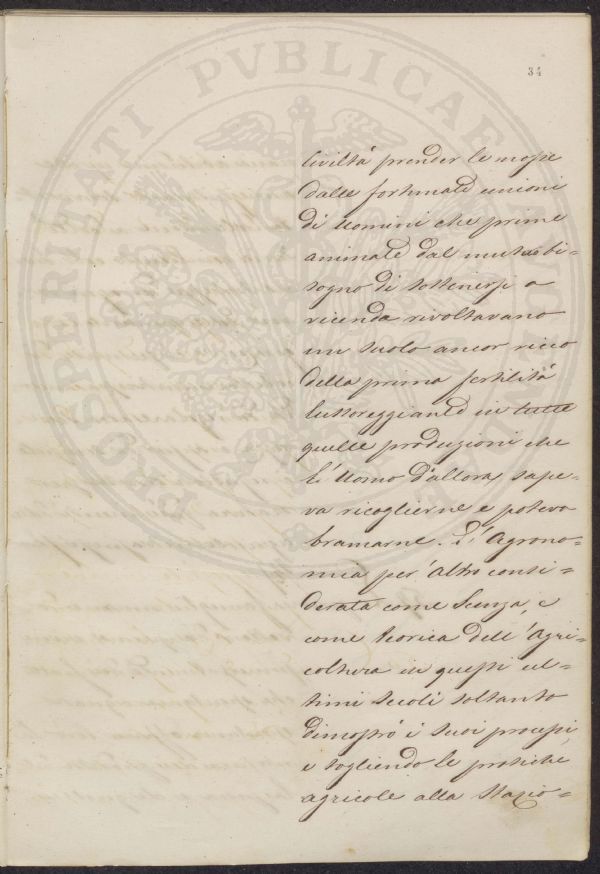 34
PROSPERITATI PVBLICAE AVGENDAE
Civiltà prender le mosse
dalle fortunate unioni
di Uomini che prime
animate dal mutuo bi=
sogno di sostenersi a
vicenda rivoltavano
un suolo ancor ricco
della prima fertilità
lussoreggiante in tutte
quelle produzioni che
l'Uomo d'allora sape=
va ricoglierne e poteva
bramarne. L'Agrono=
mia per altro consi=
derata come Scenza, e
come teorica dell'Agri=
coltura in questi ul=
timi secoli soltanto
dimostrò i suoi processi
e togliendo le pratiche
agricole alla stazio=